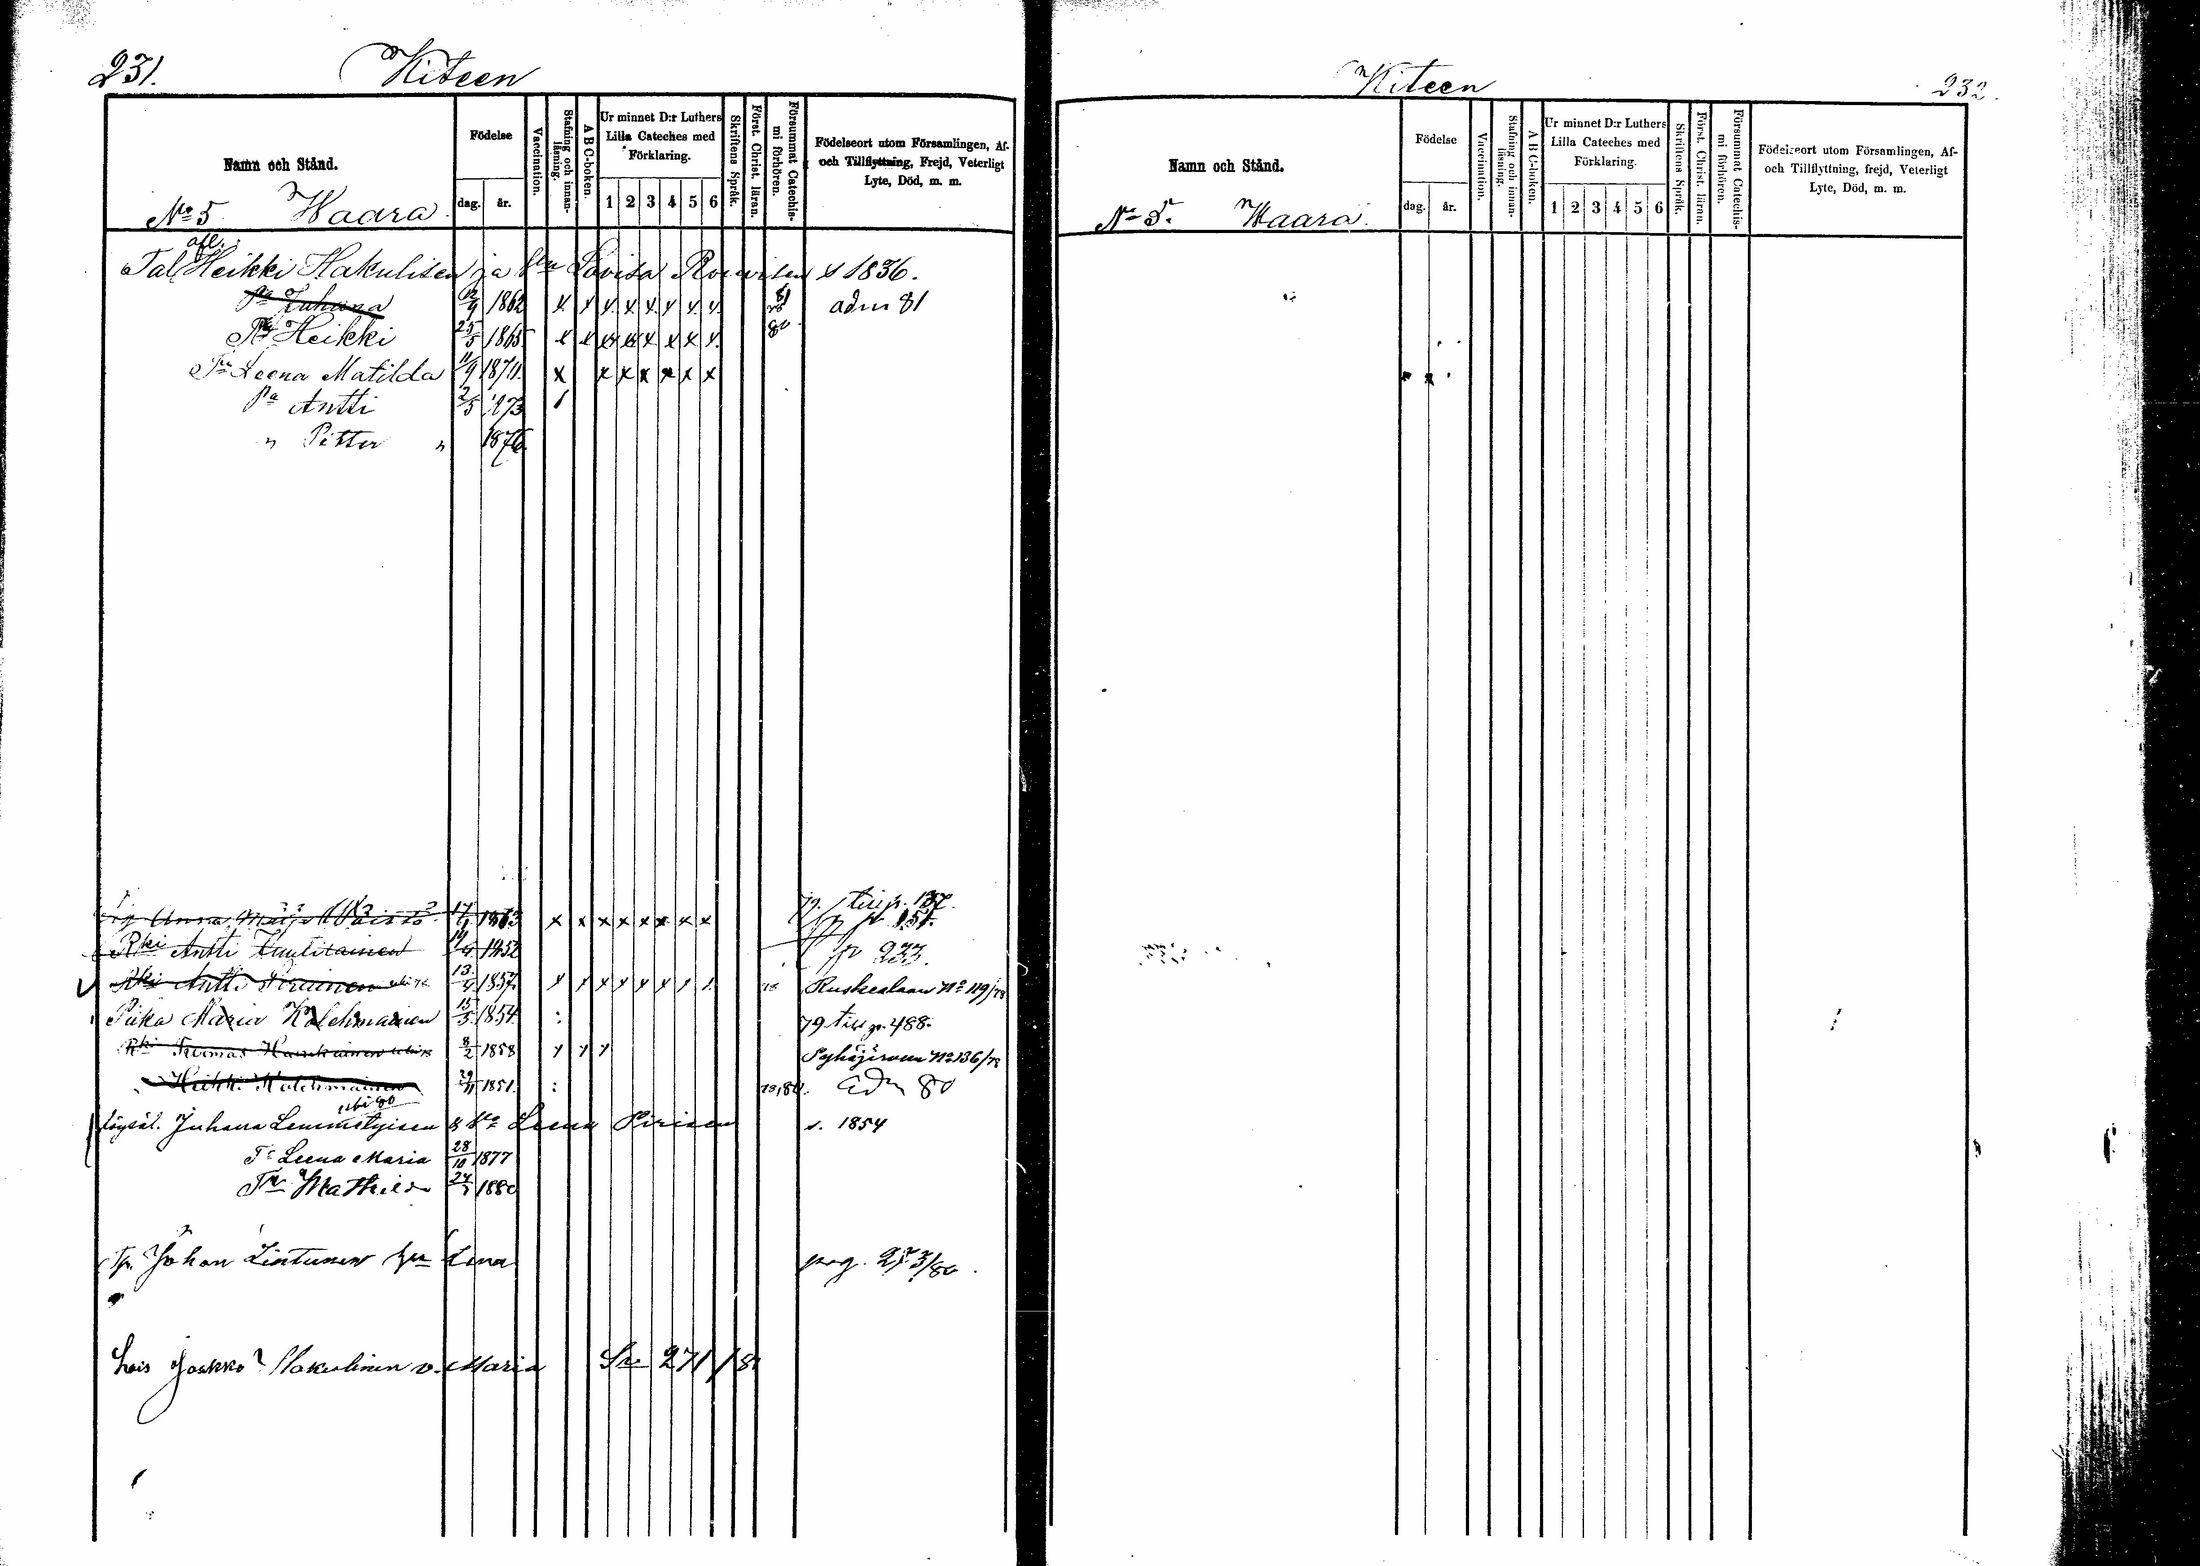 231.
Kiteen
Namn och Stånd.
Födelse
dag. år.
Vaccination.
Stafning och innanläsning.
A B C-boken.
Ur minnet D:r Luthers Lilla Cateches med Förklaring.
1 2 3 4 5 6
Skriftens Språk.
Först. Christ. läran.
Försummat Catechismi förhören.
Födelseort utom Församlingen, Af- och Tillflyttning, Frejd, Veterligt Lyte, Död, m. m.
No 5 Waara
afl.
Tal Heikki Hakulisen ja Lovisa s 1836.
Pa Juhana 12/9 1862 x x x x x x x x 81 adm 81
Pa Heikki 25/5 1865 x x x x x x x x 80
Tr Leena Matilda 11/9 1871. x x x x x x x
Pa Antti 2/5 1873
" Petter " 1876
Anna 17/ 1863 x x x x x x x x 79 tis p. 137.
p 151.
Rki Antti 1852 p 233.
Rki Antti Piriinen 13/4 1857 x x x x x x Ruskealaan No 119/78
Piika Maria Kolehmainen 15/5 1854 : 79 tis p. 488.
Rki Tuomas 8/2 1858 x x x Pyhäjärven No 136/78
Heikki Kolehmainen 29/11 1851. : 78,80. Adm 80
löysäl. Juhana & Leena Piriinen s. 1854
Tr Leena Maria 28/10 1877
Tr Mathilda 1880
Johan Lintunen Lena pag. 273/80.
Lois Jaakko Hakulinen v. Maria 271/8
Kiteen
232.
Namn och Stånd.
Födelse
dag. år.
Vaccination.
Stafning och innanläsning.
A B C-boken.
Ur minnet D:r Luthers Lilla Cateches med Förklaring.
1 2 3 4 5 6
Skriftens Språk.
Först. Christ. läran.
Försummat Catechismi förhören.
Födelseort utom Församlingen, Af- och Tillflyttning, frejd, Veterligt Lyte, Död, m. m.
No 5. Waara.